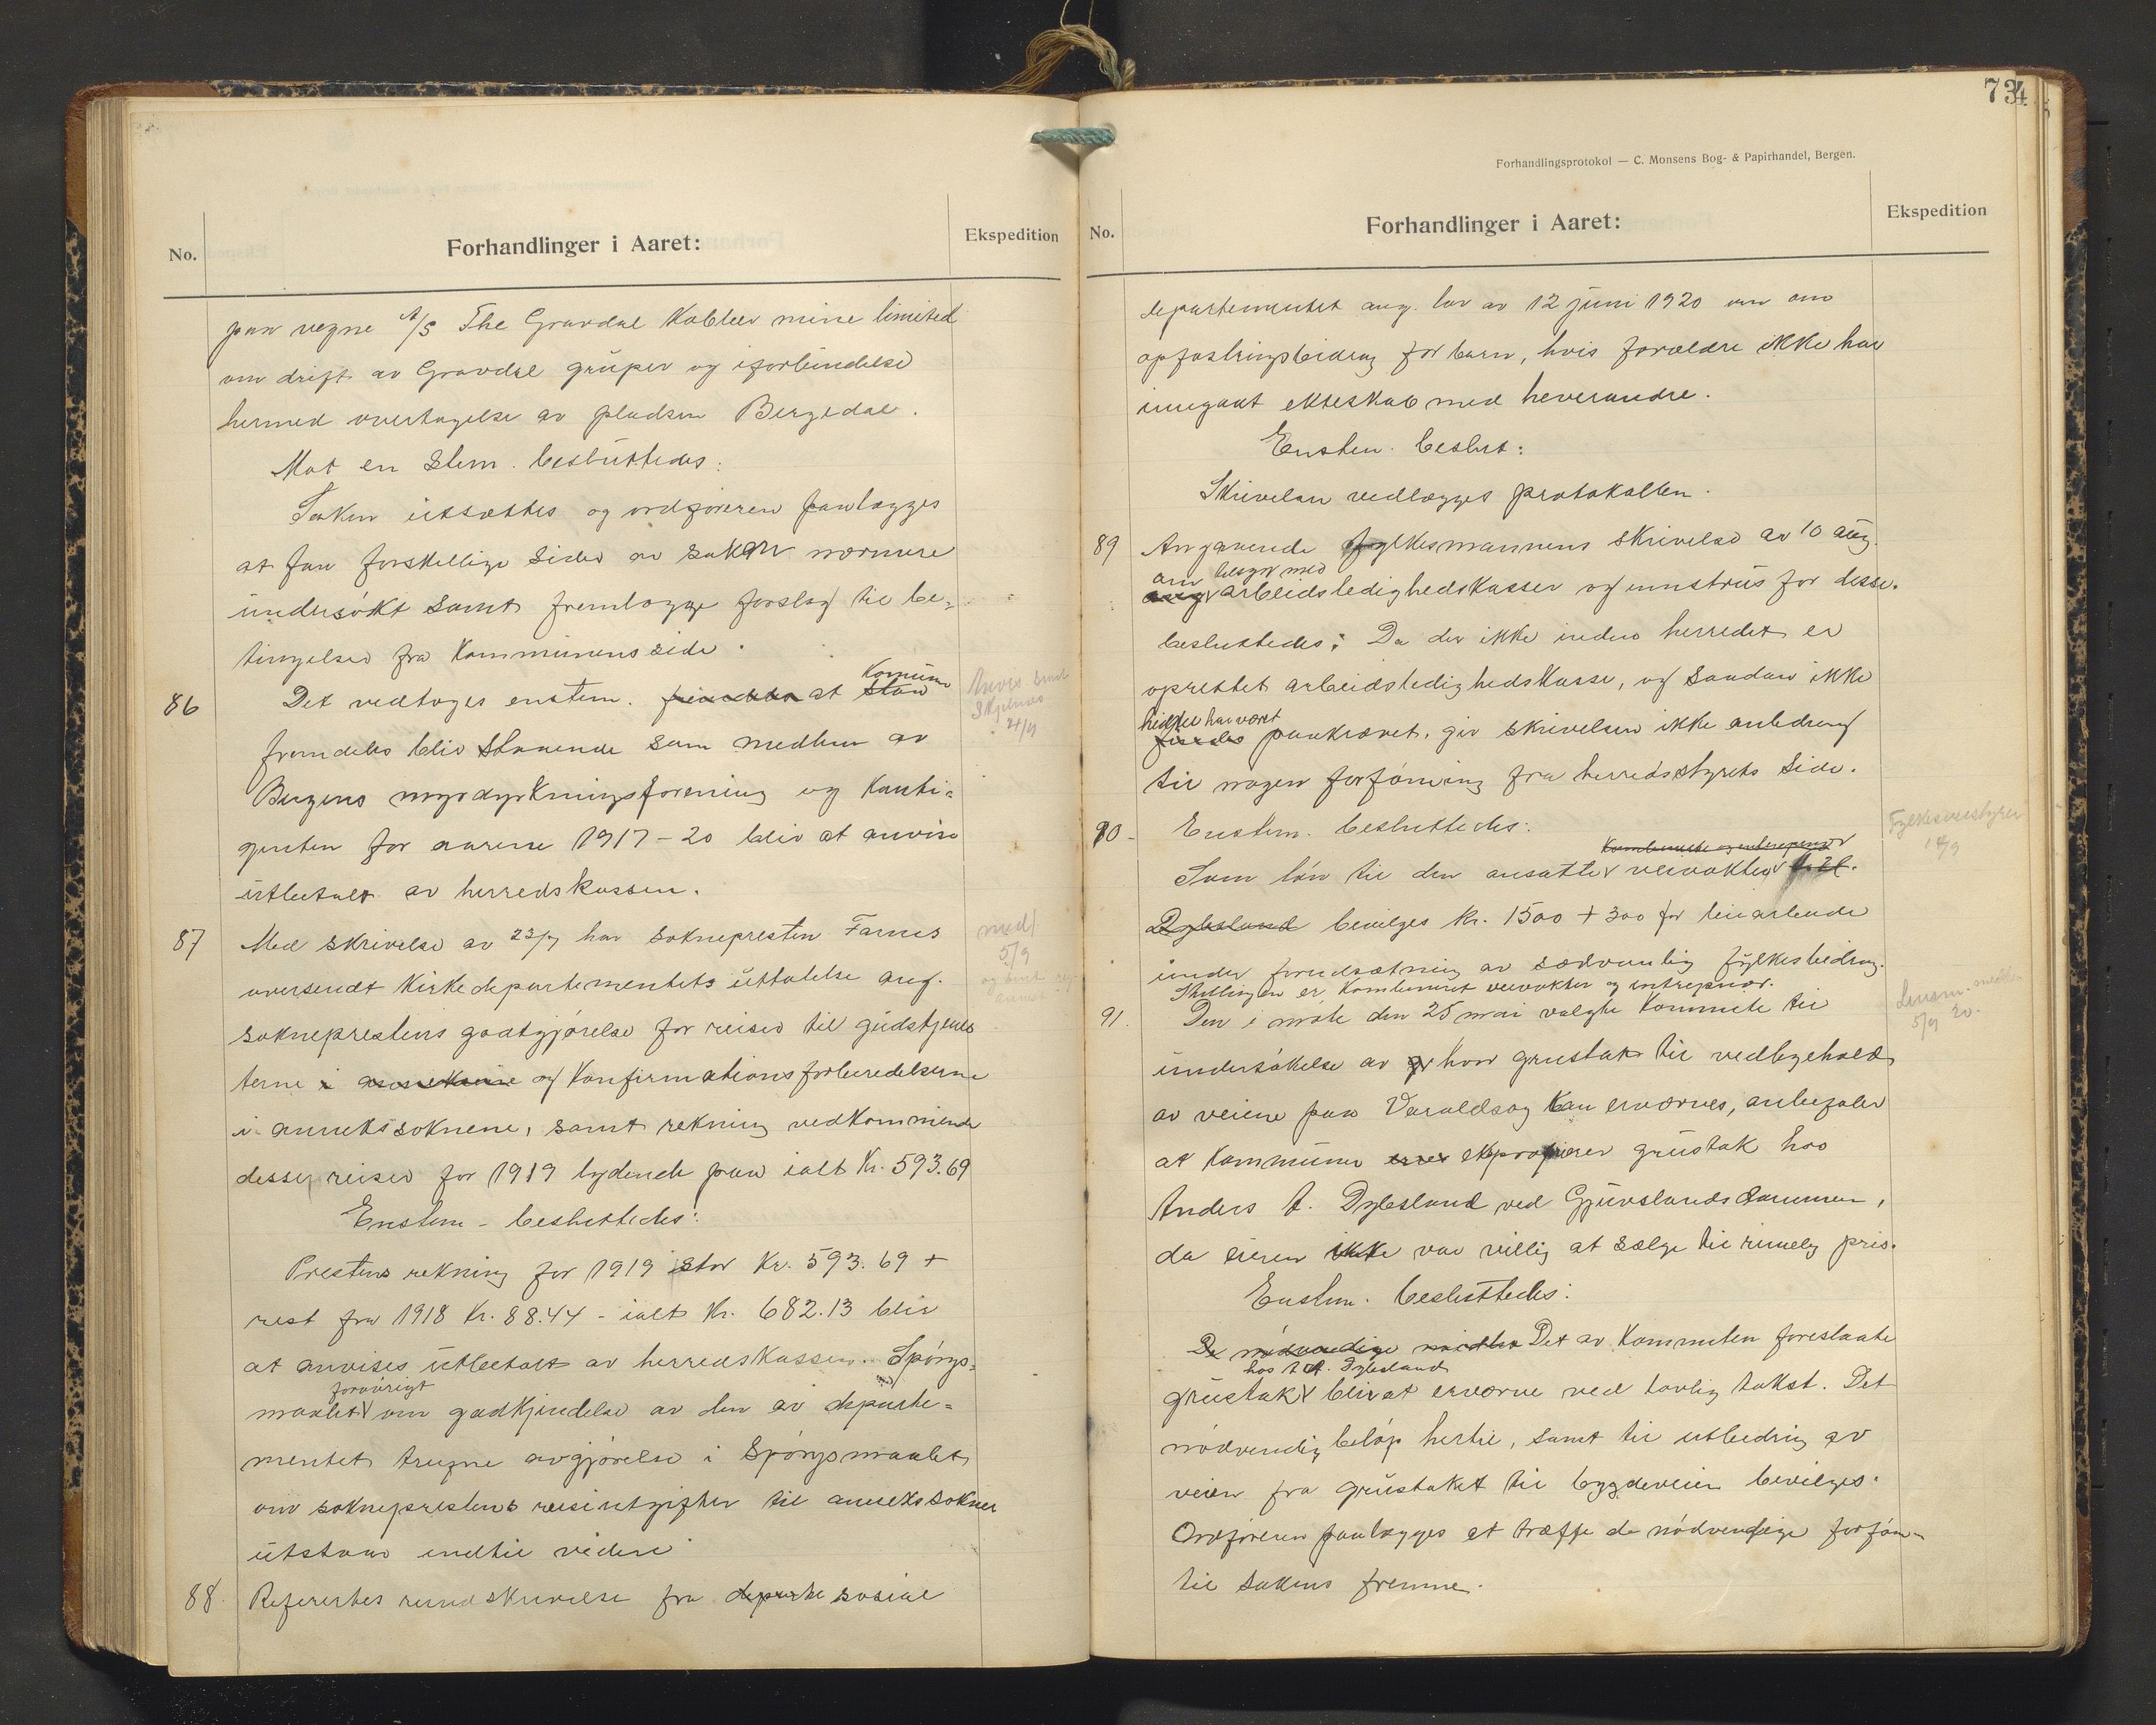 No.
Forhandlinger i Aaret:
Ekspedition
paa vegne A/S The Gravdal Kobber mine limited
om drift av Gravdal gruper og iforbindelse
hermed overtagelse av pladsen Bergedal.
Mot en stem. besluttedes:
Saken utsættes og ordføreren paalægges
at faa forskellige sider av saken nærmere
undersøkt samt fremlægge forslag til be-
tingelser fra Kommunens side.
86
Det vedtoges enstem. at Komunen
fremdeles blir staaende som medlem av
Bergens myrdyrkningsforening og Konti-
genten for aarene 1917-20 blir at anvise
utbetalt av herredskassen.
21/9
87
Med skrivelse av 23/7 har soknepresten Farnes
oversendt Kirkedepartementets uttalelse ang.
sokneprestens godtgjørelse for reiser til gudstjenes
terne i og Konfirmationsforberedelserne
i annekssoknene, samt rekning vedkommende
disse reiser for 1919 lydende paa ialt Kr. 593.69
Enstem. besluttedes:
Prestens rekning for 1919 stor Kr. 593.69 +
rest fra 1918 Kr. 88.44 - ialt Kr. 682.13 blir
at anvises utbetalt av herredskassen. Spørgs-
maalet forøvrigt om godkjendelse av den av departe-
mentet trufne avgjørelse i spørgsmaalet
om sokneprestens reiseutgifter til annekssoknene
utstaar indtil videre
med
5/9
88.
Refererertes rundskrivelse fra departe sosial
734
Forhandlingsprotokol — C. Monsens Bog- & Papirhandel, Bergen.
No.
Forhandlinger i Aaret:
Ekspedition
departementet ang. lov av 12 juni 1920 om om
opfostringsbidrag for barn, hvis forældre ikke har
inngaat ekteskab med hverandre.
Enstem. beslut:
Skrivelsen vedlægges protokollen.
89
Angaaende fylkesmannens skrivelse av 10 aug.
om tilsyn med
ang arbeidsledighedskasser og innstrus for disse.
besluttedes: Da der ikke inden herredet er
oprettet arbeidsledighedskasse, og saadan ikke
hidtil har været
paakrævet, gir skrivelsen ikke anledning
til nogen forføining fra herredsstyrets side.
90-
Enstem. besluttedes:
Som løn til den ansatte veivokter
Dyesland bevilges Kr. 1500 + 300 for leiearbeide
under forudsætning av sedvanlig fylkesbidrag.
Stillingen er Kombinert veivokter og entrepenør.
Fylkesveistyrer
91.
Den i møte den 25 mai valgte Kommite til
undersøkelse av hvor grustak til vedlikehold
av veiene paa Varaldsøy kan erværves, anbefaler
at Kommunen ekspropierer grustak hos
Anders A. Dyesland ved Gjuvslandsdammen,
da eieren ikke var villig at sælge til rimelig pris.
5/9 20.
Enstem. besluttedes:
De nødvendige midler Det av Kommiten foreslaate
hos A A. Dyesland
grustak blir at erværve ved lovlig takst. Det
nødvendig beløp hertil, samt til utbedring av
veien fra grustaket til bygdeveien bevilges.
Ordføreren paalægges at træffe de nødvendige forføin-
til sakens fremme.